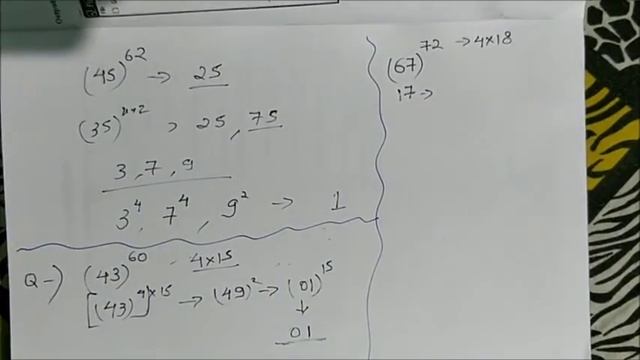 (45)^62 → 25
(35)^n×2 > 25, 75
3, 7, 9
3^4, 7^4, 9^2 → 1
Q→) (43)^60 4×15
[(43)^4]^×15 → (49)^2 → (01)^15
↓
01
(67)^72 → 4×18
17→